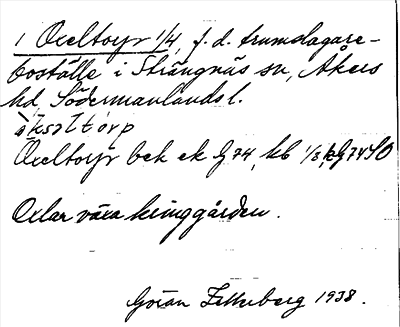 1 Oxeltorp 1/4, f. d. trumslagare-
boställe i Strängnäs sn, Åkers
hd, Södermanlands l.
òksəltórp
Oxeltorp bek ek G74, kb 1/8, G74 SO
Oxlar växa kring gården.
Göran Zetterberg 1938.